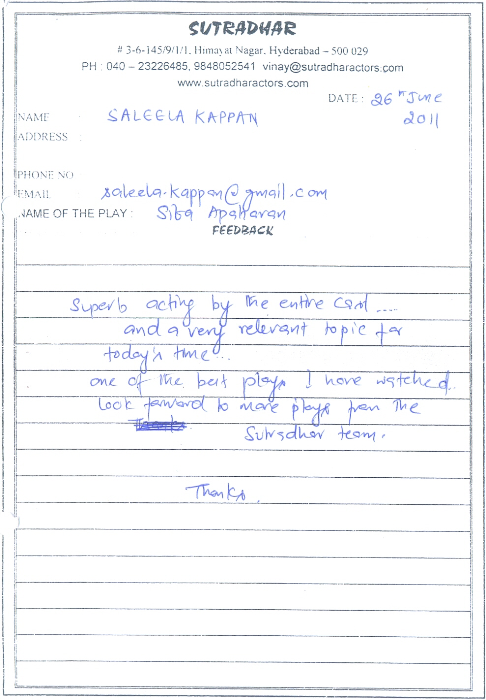 SUTRADHAR
# 3-6-145/9/1/1, Himayat Nagar, Hyderabad – 500 029
PH : 040 – 23226485, 9848052541 vinay@sutradharactors.com
www.sutradharactors.com
DATE : 26th June 2011
NAME : SALEELA KAPPAN
ADDRESS :
PHONE NO
EMAIL saleela.kappan@gmail.com
NAME OF THE PLAY : Sita Apaharan
FEEDBACK
Superb acting by the entire cast ....
and a very relevant topic for
today's time...
one of the best plays I have watched..
look forward to more plays from the
Sutradhar team.
Thanks.